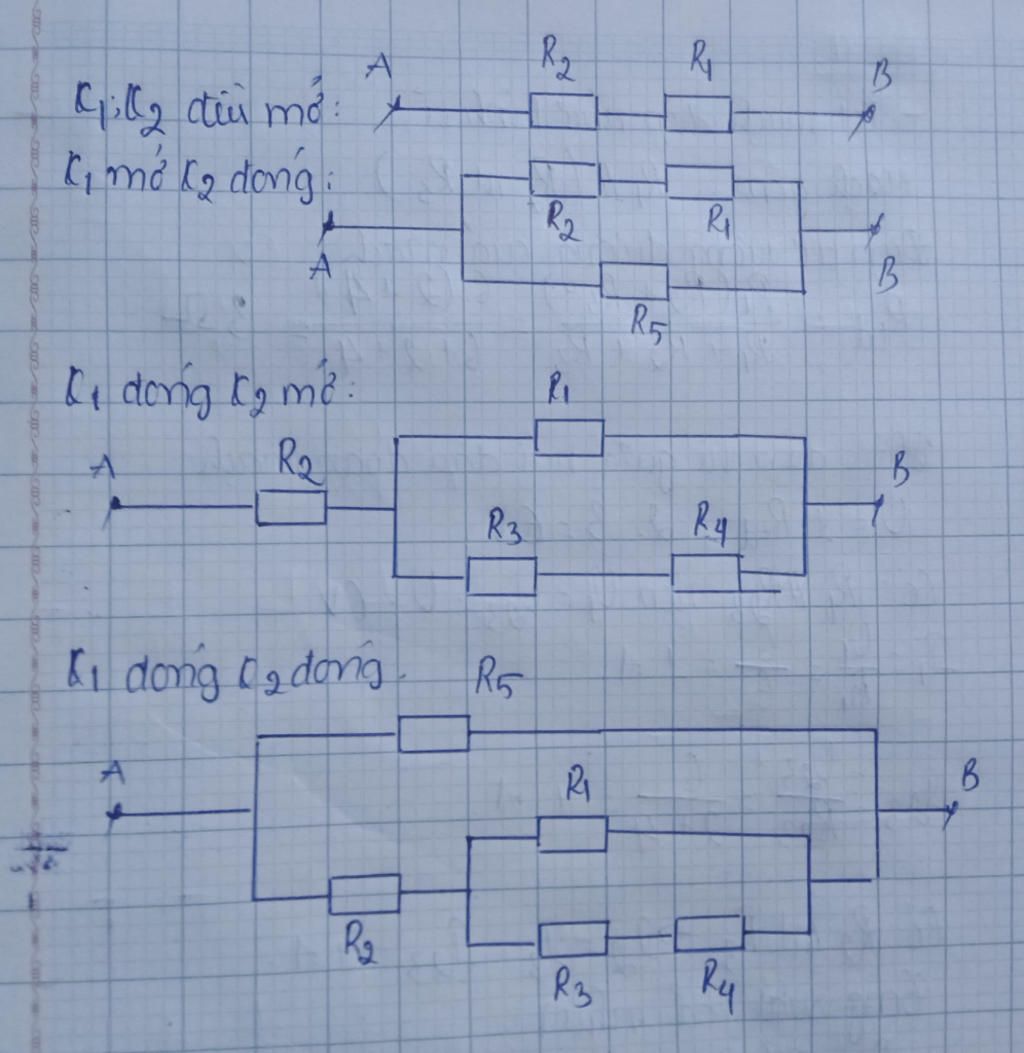 A R₂ R₁ B
K₁; K₂ đều mở:
K₁ mở K₂ đóng:
R₂ R₁
A B
R₅
K₁ đóng K₂ mở:
R₁
A R₂ B
R₃ R₄
K₁ đóng K₂ đóng.
R₅
A R₁ B
R₂
R₃ R₄